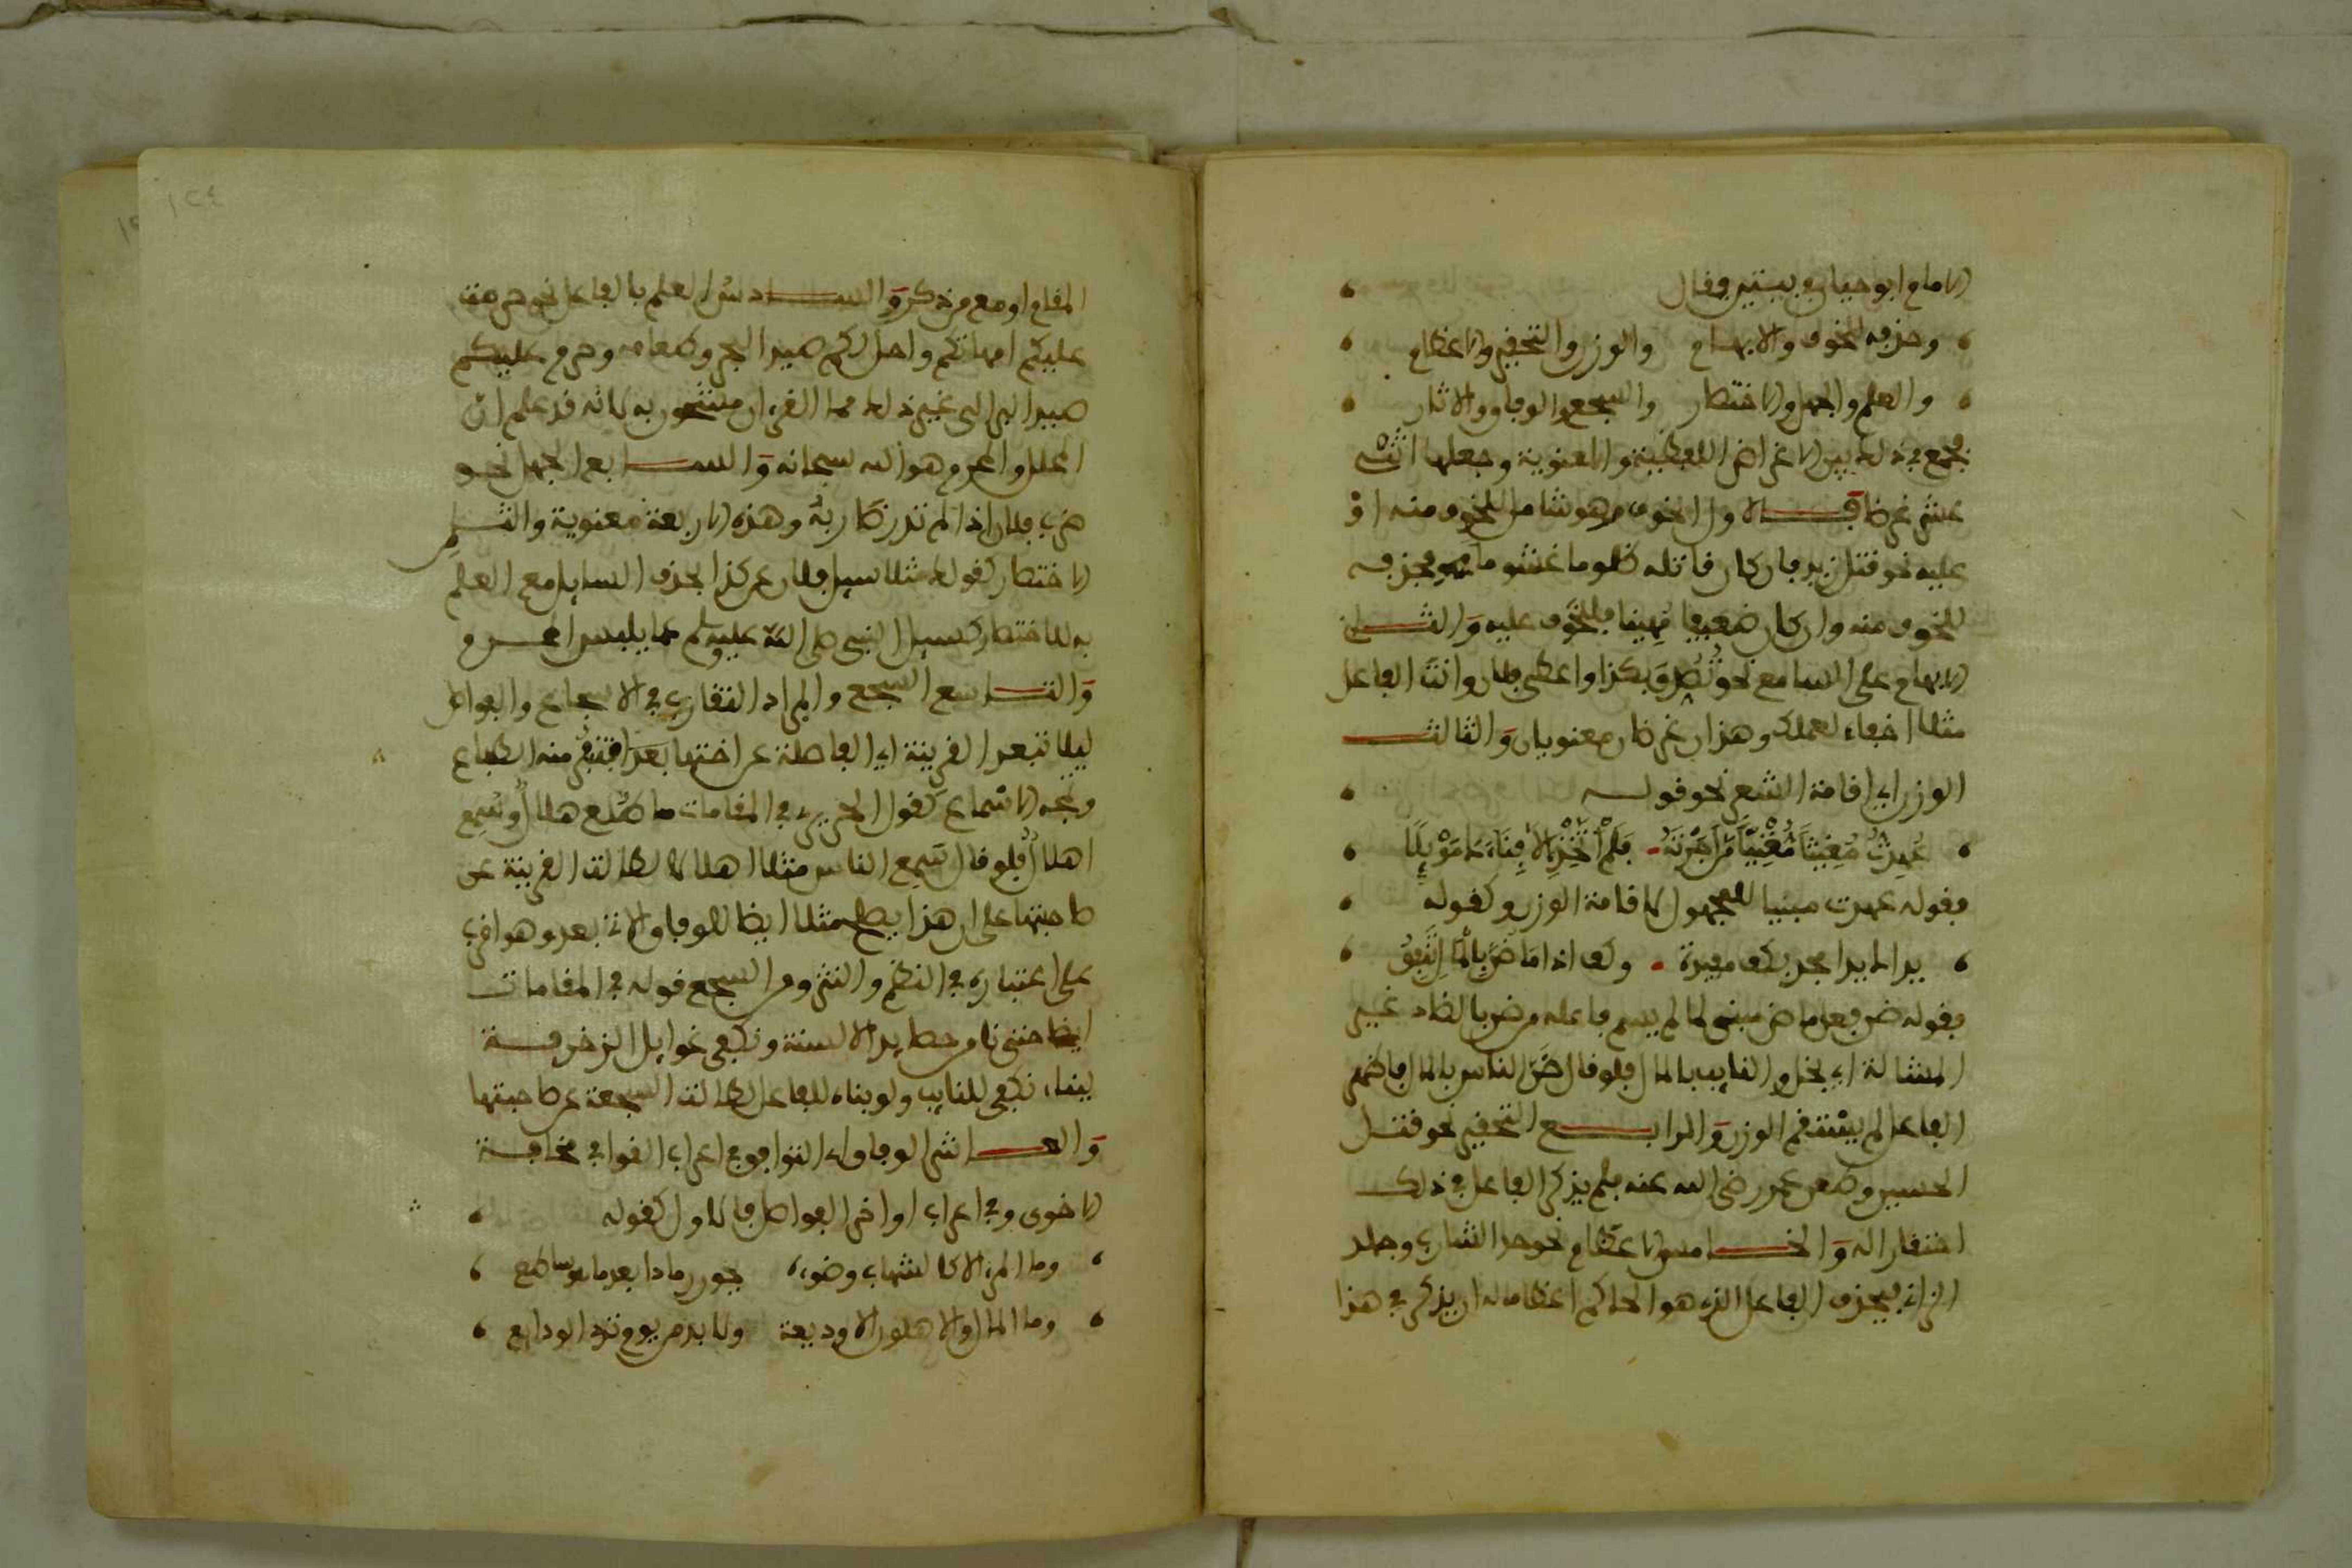 الامام ابو حيان في بيتين فقال
وحذفه للخوف والابهام والوزن والتحقير والاعظام
والعلم والجهل والاختصار والسجع والوفاق والايثار
فجمع في ذلك بين الاغراض اللفظية والمعنوية وجعلها اثنى
عشر غرضا فالاول الخوف وهو شامل للخوف منه او
عليه نحو قتل زيد فان كان قاتله ظلوما غشوما فحذفه
للخوف منه وان كان ضعيفا مهينا فللخوف عليه والثاني
الابهام على السامع نحو تُصُدِّقَ بكذا واعطى فلان وانت الفاعل
مثلا اخفاء لعملك وهذان غرضان معنويان والثالث
الوزن اي اقامة الشعر نحو قوله
عُهِدْتَ مُغِيثًا مُغْنِيًا مَنْ أَجَرْتَهُ فَلَمْ أَتَّخِذْ إِلَّا فِنَاءَكَ مَوْئِلَا
فقوله عهدت مبنيا للمجهول لاقامة الوزن وكقوله
يداك يدا مجد فكف مفيدة وكف اذا ما ضن بالمال تنفق
فقوله ضن فعل ماض مبني لما لم يسم فاعله وضن بالضاد غير
المشالة اي بخل والنايب بالمال فلو قال ضن الناس بالمال فاظهر
الفاعل لم يستقم الوزن والرابع التحقير نحو قتل
الحسين وطعن عمر رضي الله عنه فلم يذكر الفاعل في ذلك
احتقارا له والخامس الاعظام نحو حد الشارب وجلد
الزاني فيحذف الفاعل الذي هو الحاكم اعظاما له ان يذكر في هذا
١٢٤
المقام او مع من ذكر والسادس العلم بالفاعل نحو حرمت
عليكم امهاتكم واحل لكم صيد البحر وطعامه وحرم عليكم
صيد البر الى غير ذلك مما القرءان مشحون به لانه قد علم ان
المحلل والمحرم هو الله سبحانه والسابع الجهل نحو
ضرب فلان اذا لم تدر ضاربه وهذه الاربعة معنوية والثامن
الاختصار كقولك مثلا سيل فلان عن كذا بحذف السايل مع العلم
به للاختصار كسيل النبي صلى الله عليه وسلم عما يلبس المحرم
والتاسع السجع والمراد التقارب في الاسجاع والفواصل
ليلا تبعد القرينة اي الفاصلة عن اختها بعدا تنفر منه الطباع
وتمجه الاسماع كقول الحريري في المقامات ما
اهلا فلو قال سمع الناس مثلا اهلا لا لطالت القرينة عن
صاحبتها على ان هذا يصلح مثلا ايضا للوفاق الاتي بعد وهو اقرب
على اعتباره في النظم والنثر ومن السجع قوله في المقامات
ايضا حتى نامن حصايد الالسنة ونكفى غوايل الزخرفة
ببناء نكفى للنايب ولو بناه للفاعل لطالت السجعة عن صاحبتها
والعاشر الوفاق اي التوافق في اعراب القوافي مخافة
الاقوى وفي اعراب اواخر الفواصل فالاول كقوله
وما المرء الا كالشهاب وضوءه يحور رمادا بعد ما هو ساطع
وما المال والاهلون الا وديعة ولا بد من يوم ترد الودايع